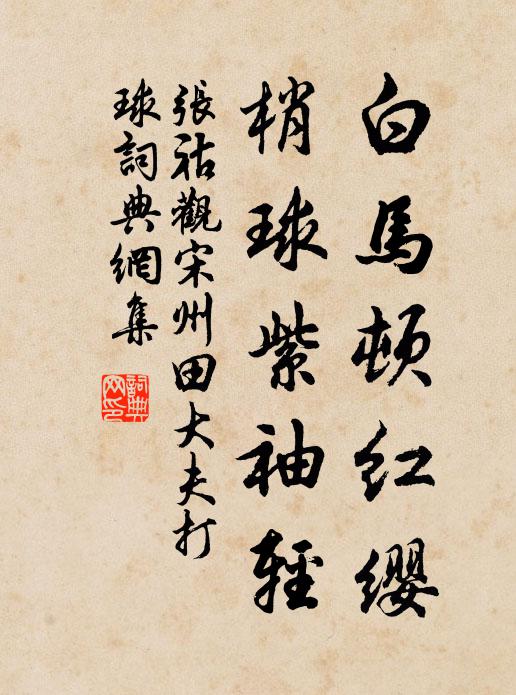 白馬頓紅纓
梢球紫袖輕
張祜觀宋州田大夫打
球詞典網集
詞典
网印